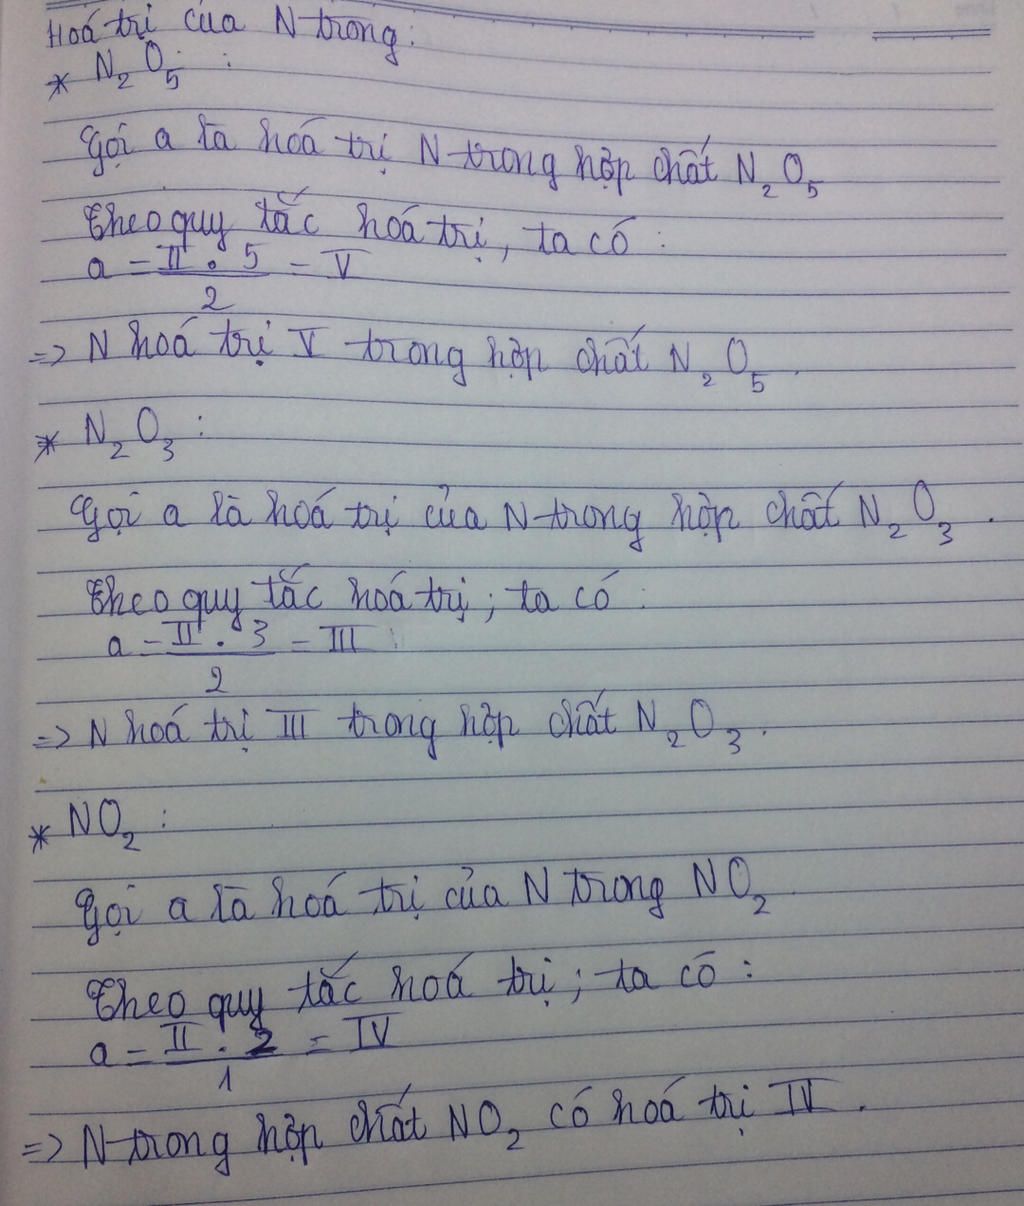 Hoá trị của N trong:
* N₂O₅ :
Gọi a là hoá trị N trong hợp chất N₂O₅
Theo quy tắc hoá trị, ta có :
a = II . 5 / 2 = V
=> N hoá trị V trong hợp chất N₂O₅.
* N₂O₃ :
Gọi a là hoá trị của N trong hợp chất N₂O₃.
Theo quy tắc hoá trị ; ta có :
a = II . 3 / 2 = III
=> N hoá trị III trong hợp chất N₂O₃.
* NO₂ :
Gọi a là hoá trị của N trong NO₂
Theo quy tắc hoá trị ; ta có :
a = II . 2 / 1 = IV
=> N trong hợp chất NO₂ có hoá trị IV.